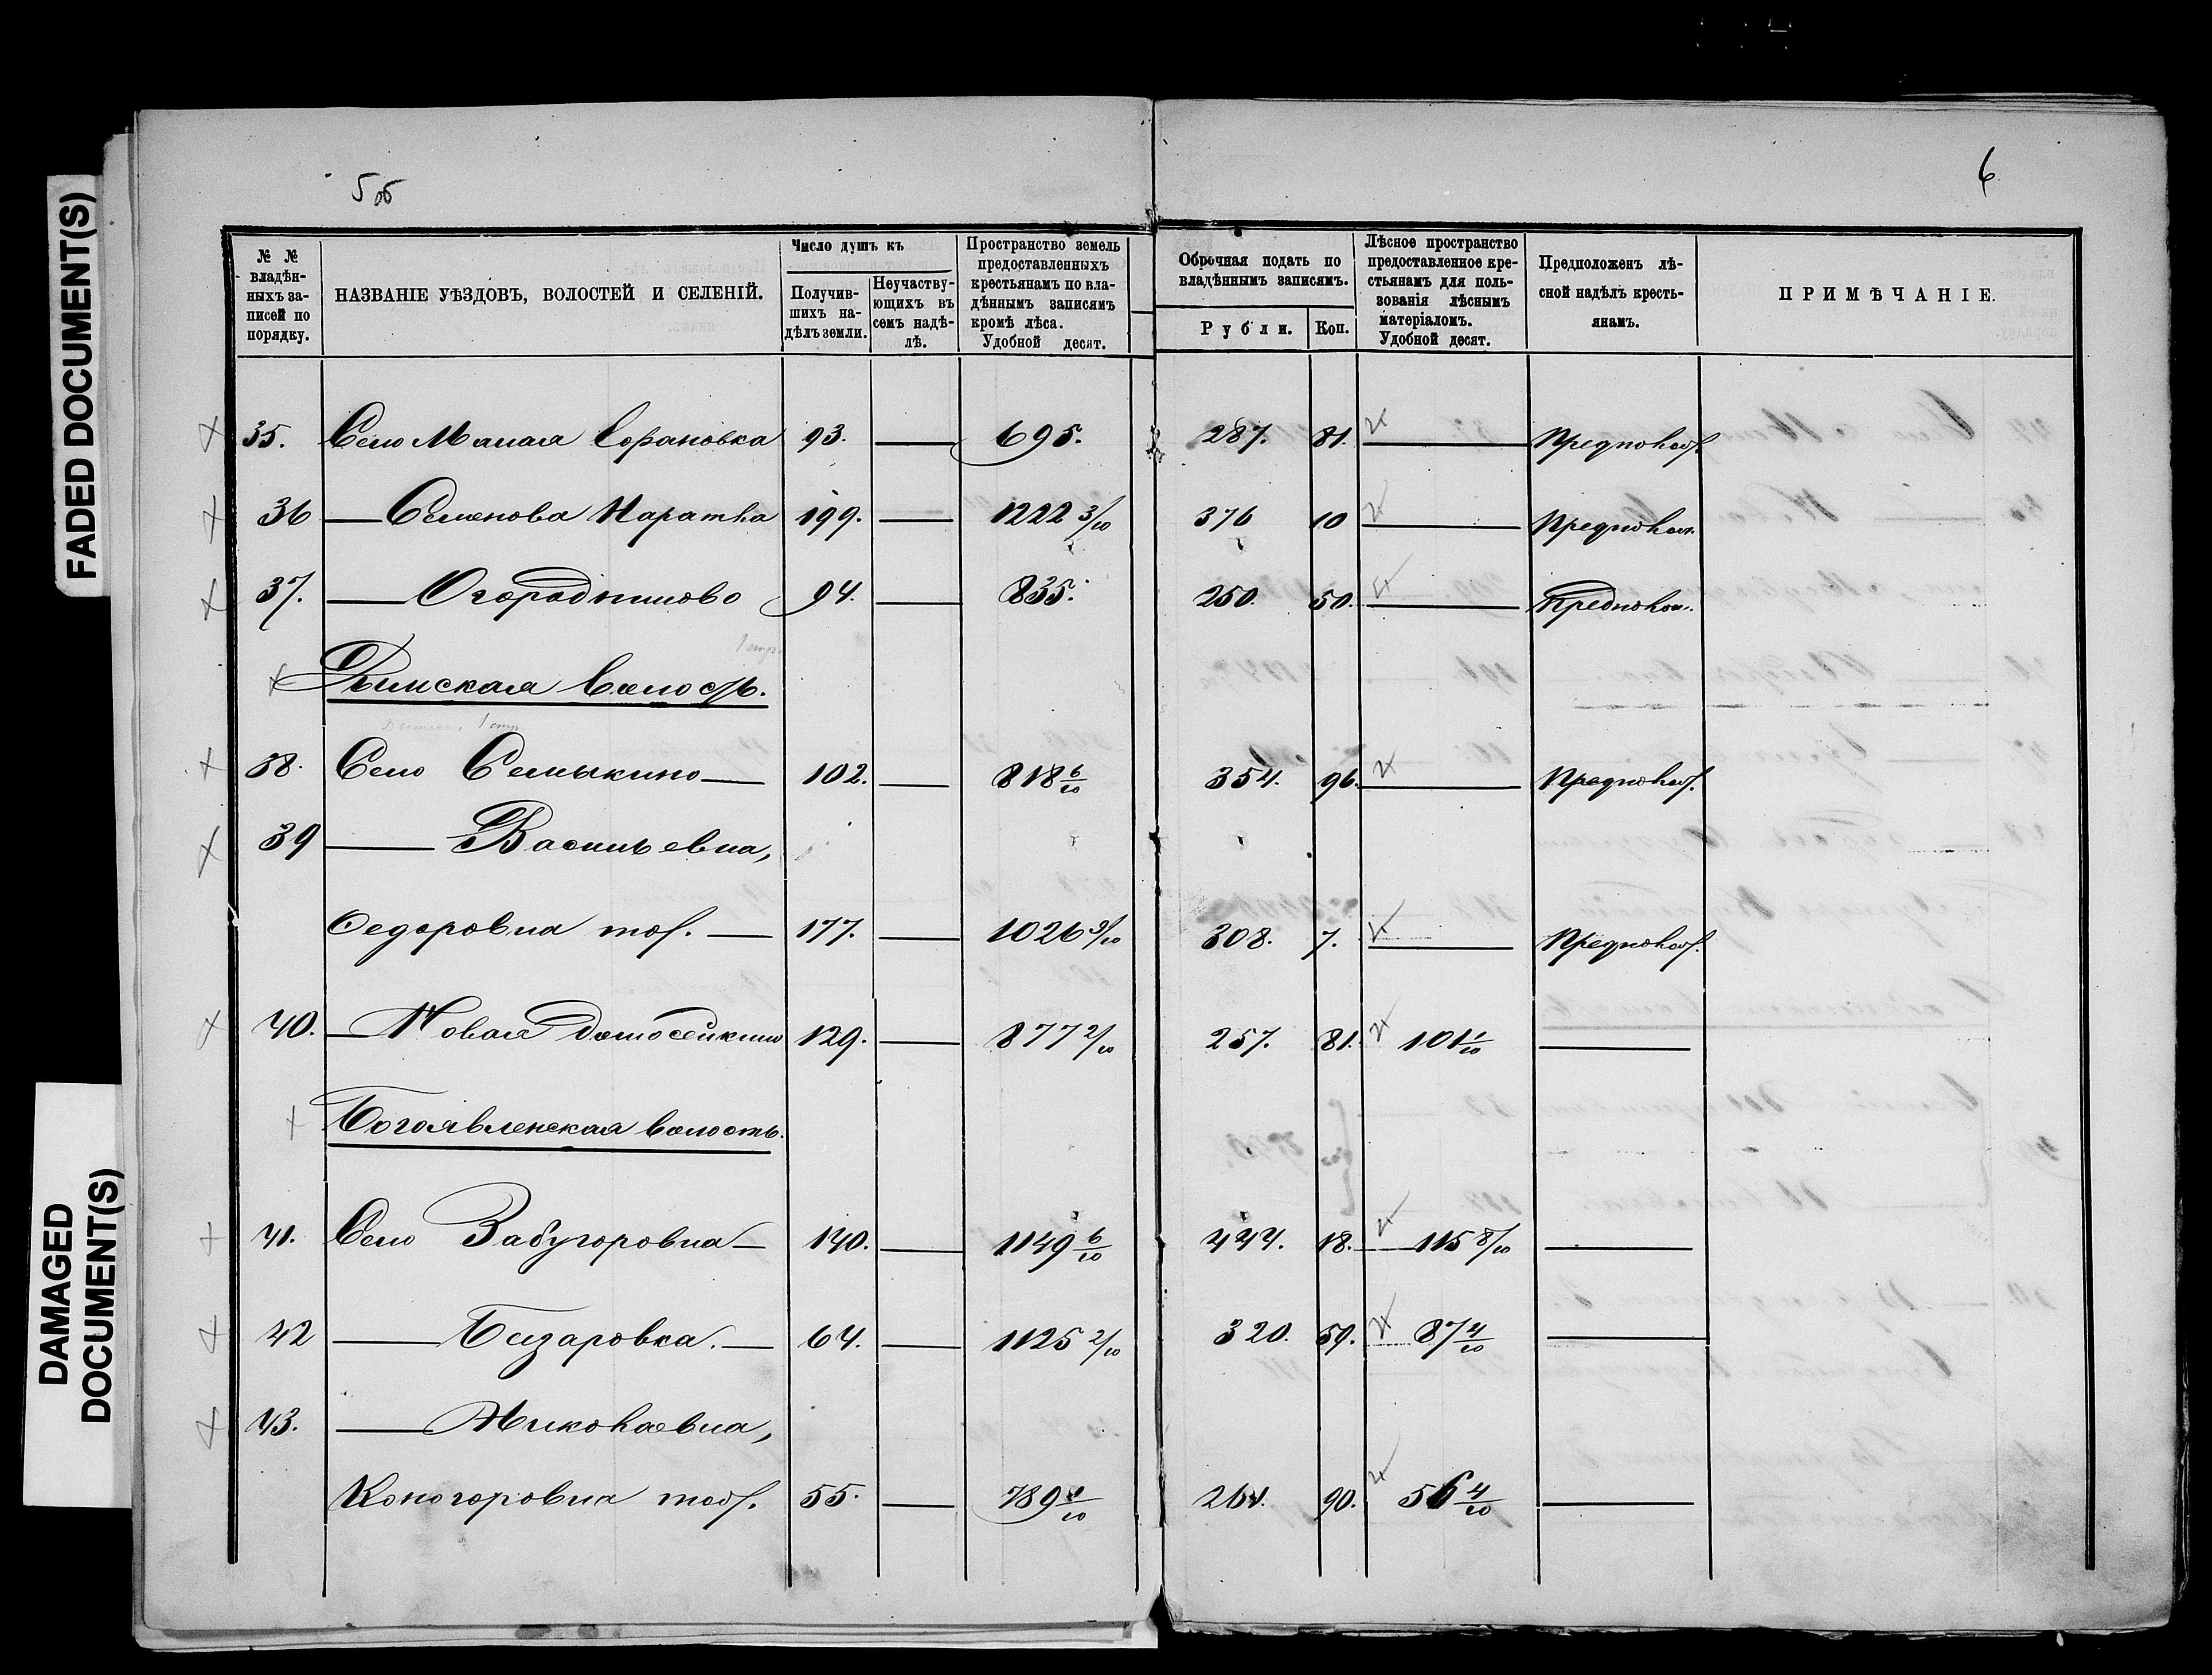 FADED DOCUMENT(S)
DAMAGED DOCUMENT(S)
5 об
6
№ № владѣн-ныхъ за-писей по порядку.
НАЗВАНІЕ УѢЗДОВЪ, ВОЛОСТЕЙ И СЕЛЕНІЙ.
Число душъ къ
Получив-шихъ на-дѣлъ земли.
Неучаству-ющихъ въ семъ надѣ-лѣ.
Пространство земель предоставленныхъ крестьянамъ по вла-дѣннымъ записямъ кромѣ лѣса.
Удобной десят.
Оброчная подать по владѣннымъ записямъ.
Рубли. Коп.
Лѣсное пространство предоставленное кре-стьянамъ для поль-зованія лѣснымъ матеріаломъ.
Удобной десят.
Предположенъ лѣ-сной надѣлъ кресть-янамъ.
ПРИМѢЧАНІЕ.
35. Село Малая 93. — 695. 287. 81. — Предполож.
36 — Семенова Каратка 199. — 1222 3/10 376 10 — Предполож.
37. — Огородниково 94. — 835. 250. 50. — Предполож.
1 стр.
Дымская волость.
1 стр
38. Село Семыкино — 102. — 818 6/10 354. 96. — Предполож.
39 — Васильевка,
Федоровка тож. — 177. — 1026 9/10 308. 7. — Предполож.
40. — Новая Домосейкино 129. — 877 2/10 257. 81. 101 1/10 —
Богоявленская волость.
41. Село Забугоровка — 140. — 1149 6/10 444. 18. — 115 8/10 —
42 — Бизаровка. — 64. — 1125 2/10 320. 59. 87 4/10 —
43. — Николаевка,
Коногоровка тож. 55. — 789 /10 261. 90. 56 4/10 —